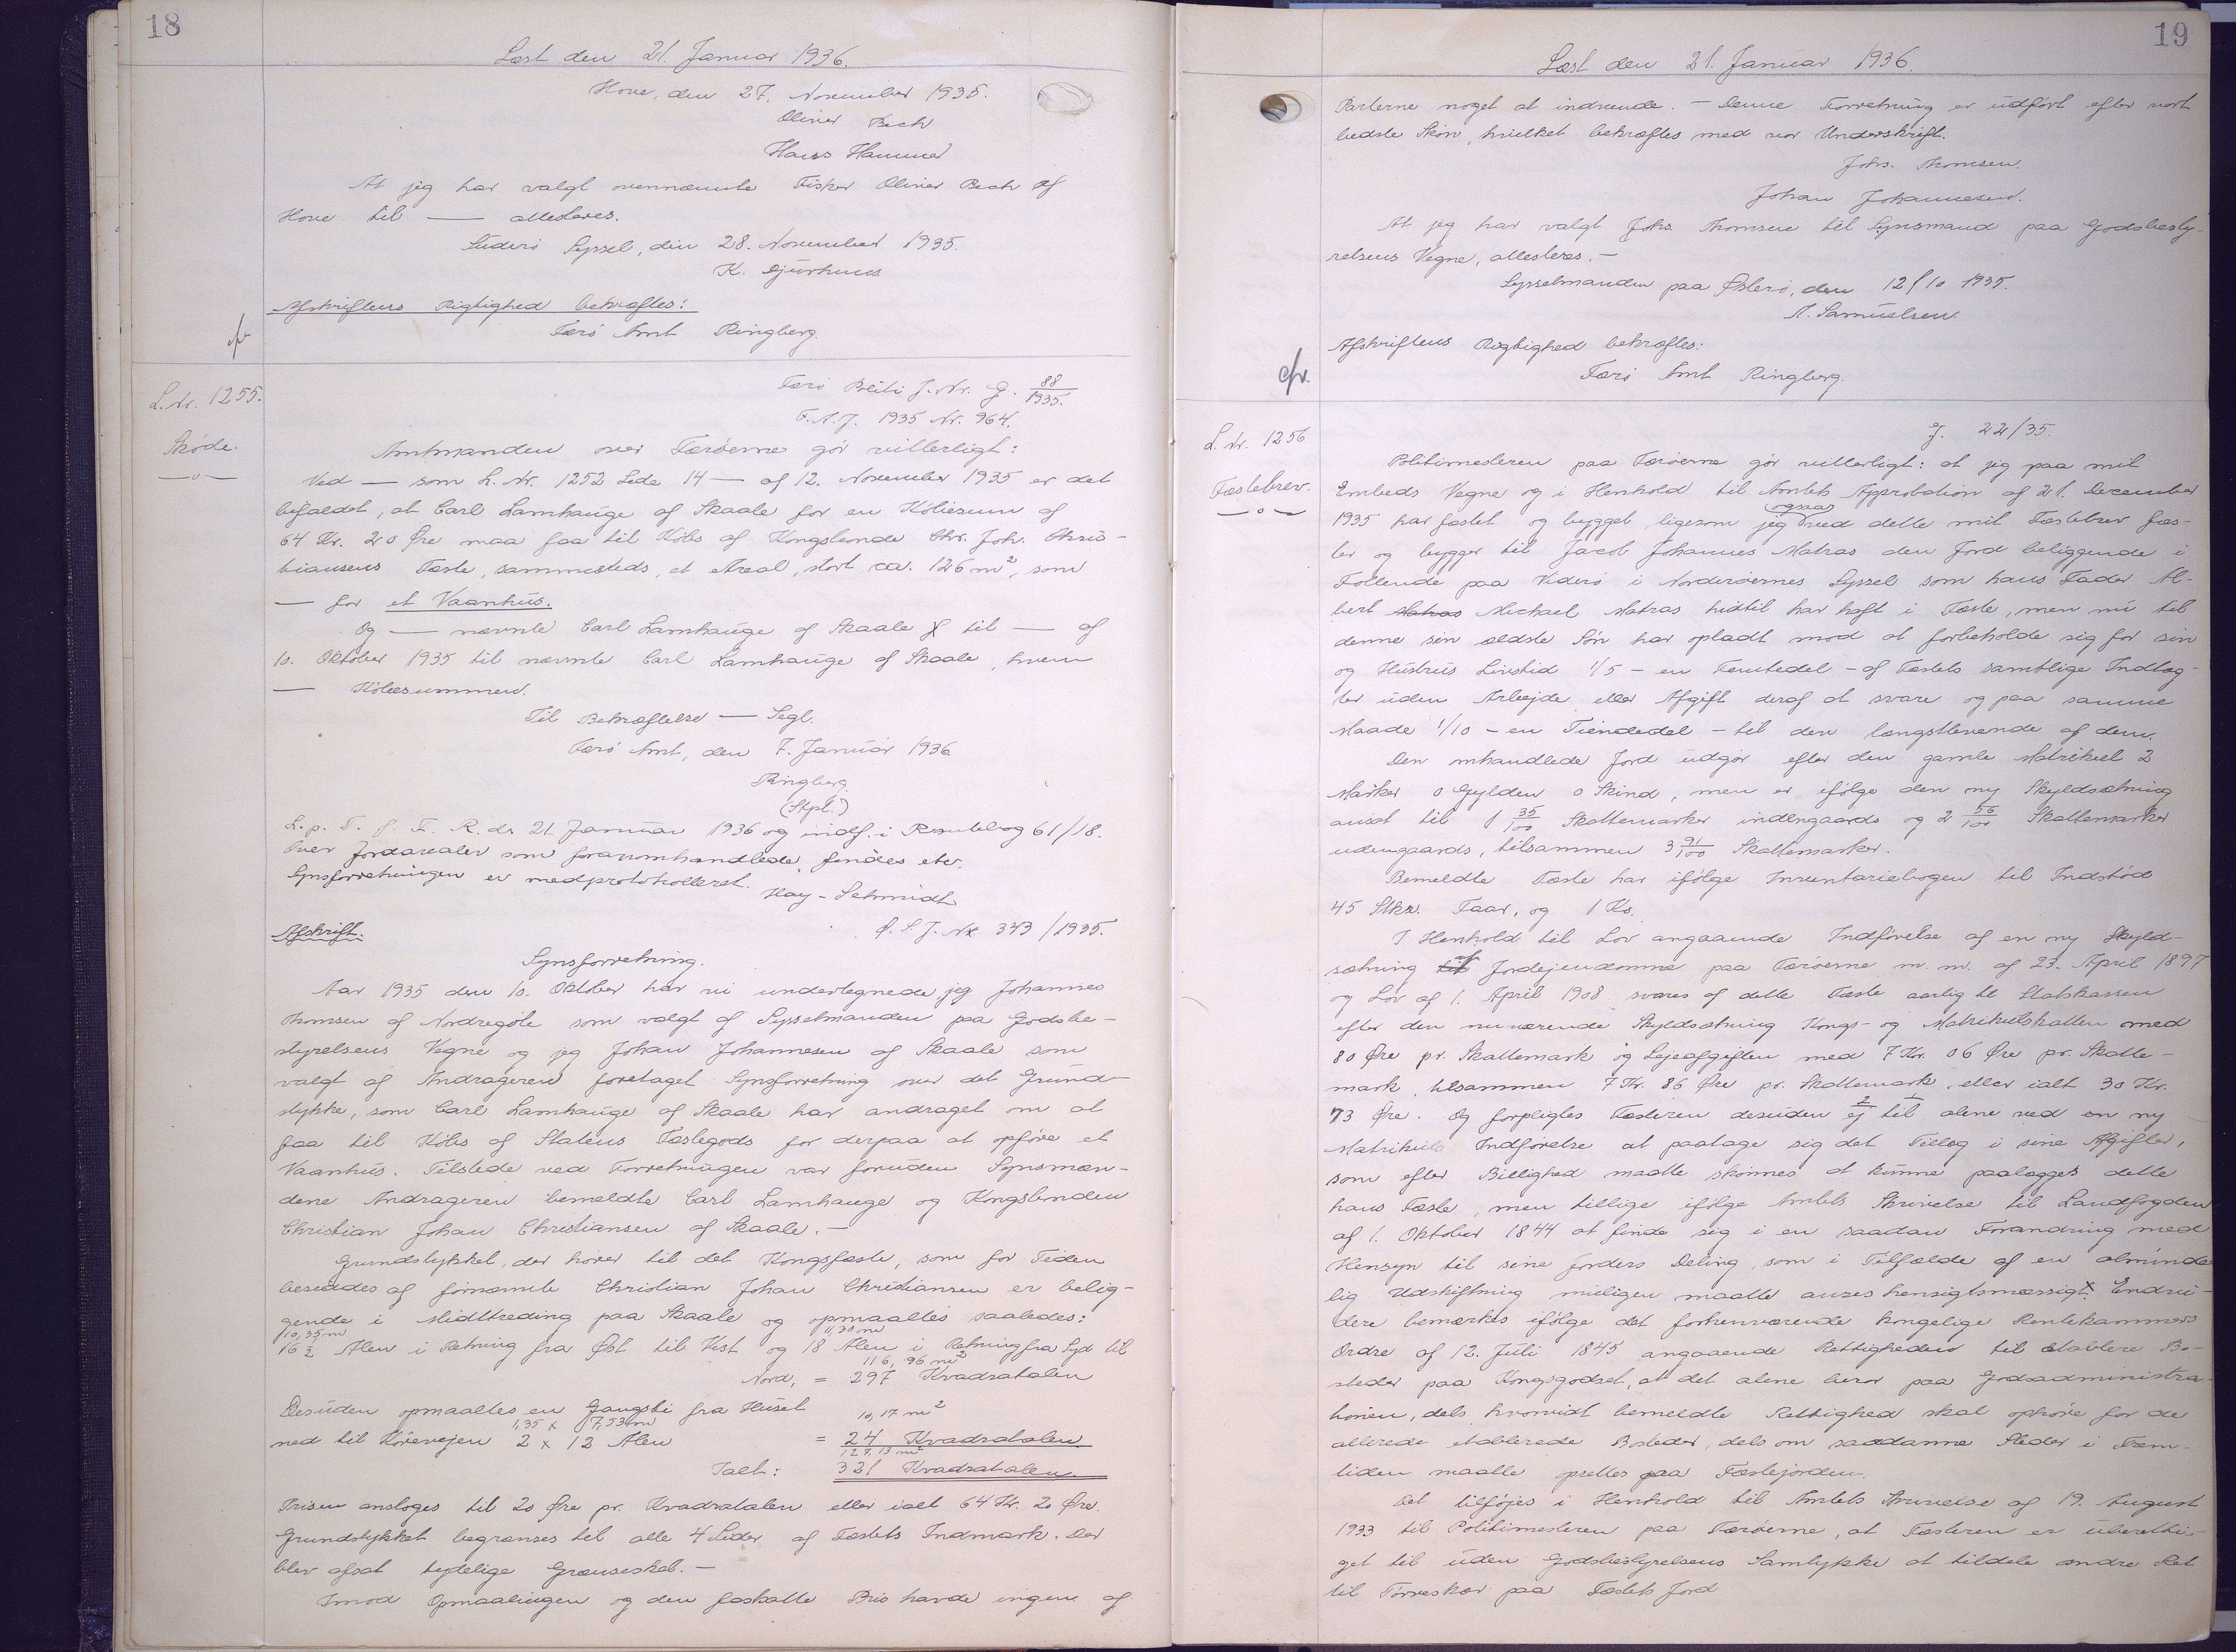 18
Læst den 21. Januar 1936.
Hove, den 27. November 1935.
Oliver Bech
Hans Hammer
At jeg har valgt ovennævnte Fisker Oliver Bech af
Hove til — attesteres.
Suderø Syssel, den 28. November 1935.
K. Djurhuus
Afskriftens Rigtighed bekræftes:
Færø Amt Ringberg.
cfr
L. Nr. 1255.
Skøde.
—o—
Færø Politi J. Nr. G. 88/1935.
F. A. J. 1935 Nr. 964.
Amtmanden over Færøerne gør vitterligt:
Ved — som L. Nr. 1252 Side 14 — af 12. November 1935 er det
bifaldet, at Carl Lamhauge af Skaale for en Købesum af
64 Kr. 20 Øre maa faa til Købs af Kongsbonde Chr. Joh. Chris-
tiansens Fæste, sammesteds, et Areal, stort ca. 126 m², som
— for et Vaanhus.
Og — nævnte Carl Lamhauge af Skaale til — af
10. Oktober 1935 til nævnte Carl Lamhauge af Skaale, hvem
— Købesummen.
Til Bekræftelse — Segl.
Færø Amt, den 7. Januar 1936
Ringberg.
(Stpl.)
L. p. T. f. F. R. d. 21. Januar 1936 og indf. i Realblog 61/18.
Over Jordarealer som foranomhandlede findes etc.
Synsforretningen er medprotokolleret.
Hay-Schmidt
Afskrift.
Ø. S J. Nr 343/1935.
Synsforretning.
Aar 1935 den 10. Oktober har vi undertegnede jeg Johannes
Thomsen af Nordregøte som valgt af Sysselmanden paa Godsbe-
styrelsens Vegne og jeg Johan Johannesen af Skaale som
valgt af Andrageren foretaget Synsforretning over det Grund-
stykke, som Carl Lamhauge af Skaale har andraget om at
faa til Købs af Statens Fæstegods for derpaa at opføre et
Vaanhus. Tilstede ved Forretningen var foruden Synsmæn-
dene Andrageren bemeldte Carl Lamhauge og Kongsbonden
Christian Johan Christiansen af Skaale. —
Grundstykket, der hører til det Kongsfæste, som for Tiden
besiddes af førnævnte Christian Johan Christiansen er belig-
gende i Midttreding paa Skaale og opmaaltes saaledes:
10,35 m 11,30 m
16 1/2 Alen i Retning fra Øst til Vest og 18 Alen i Retning fra Syd til
116,96 m²
Nord, = 297 Kvadratalen
Desuden opmaaltes en Gangsti fra Huset 10,17 m²
1,35 x 7,53 m
ned til Kørevejen 2 x 12 Alen = 24 Kvadratalen
127,13 m²
Ialt: 321 Kvadratalen.
Prisen ansloges til 20 Øre pr. Kvadratalen eller ialt 64 Kr. 20 Øre.
Grundstykket begrænses til alle 4 Sider af Fæstets Indmark. Der
blev afsat tydelige Grænseskel. —
Imod Opmaalingen og den fastsatte Pris havde ingen af
19
Læst den 21. Januar 1936.
Parterne noget at indvende. — Denne Forretning er udført efter vort
bedste Skøn, hvilket bekræftes med vor Underskrift.
Johs. Thomsen.
Johan Johannesen.
At jeg har valgt Johs. Thomsen til Synsmand paa Godsbesty-
relsens Vegne, attesteres. —
Sysselmanden paa Østerø, den 12/10 1935.
A. Samuelsen.
Afskriftens Rigtighed bekræftes:
Færø Amt Ringberg.
cfr.
L. Nr. 1256
Fæstebrev.
—o—
J. 22/35.
Politimesteren paa Færøerne gør vitterligt: at jeg paa mit
Embeds Vegne og i Henhold til Amtets Approbation af 21. December
1935 har fæstet og bygget, ligesom jeg ogsaa ved dette mit Fæstebrev fæs-
ter og bygger til Jacob Johannes Matras den Jord beliggende i
Tollende paa Viderø i Norderøernes Syssel som hans Fader Al-
bert Matras Michael Matras hidtil har haft i Fæste, men nu til
denne sin ældste Søn har opladt mod at forbeholde sig for sin
og Hustrus Livstid 1/5 - en Femtedel - af Fæstets samtlige Indtæg-
ter uden Arbejde eller Afgift deraf at svare og paa samme
Maade 1/10 - en Tiendedel - til den længstlevende af dem.
Den omhandlede Jord udgør efter den gamle Matrikel 2
Marker 0 Gylden 0 Skind, men er ifølge den ny Skyldsætning
ansat til 1 35/100 Skattemarker indengaards og 2 56/100 Skattemarker
udengaards, tilsammen 3 91/100 Skattemarker.
Bemeldte Fæste har ifølge Inventariebogen til Indstød
45 Stkr. Faar, og 1 Ko.
I Henhold til Lov angaaende Indførelse af en ny Skyld-
sætning til af Jordejendomme paa Færøerne m. m. af 23. April 1897
og Lov af 1. April 1908 svares af dette Fæste aarlig til Statskassen
efter den nuværende Skyldsætning Kongs- og Matrikulskatten med
80 Øre pr. Skattemark og Lejeafgiften med 7 Kr. 06 Øre pr. Skatte-
mark, tilsammen 7 Kr. 86 Øre pr. Skattemark, eller ialt 30 Kr.
73 Øre. Og forpligtes Fæsteren desuden 2 ej 1 til alene ved en ny
Matrikuls Indførelse at paatage sig det Tillæg i sine Afgifter,
som efter Billighed maatte skønnes at kunne paalægges dette
hans Fæste, men tillige ifølge Amtets Skrivelse til Landfogden
af 1. Oktober 1844 at finde sig i en saadan Forandring med
Hensyn til sine Jorders Deling, som i Tilfælde af en alminde
lig Udskiftning muligen maatte anses hensigtsmæssigt. Endvi-
dere bemærkes ifølge det forhenværende kongelige Rentekammers
Ordre af 12. Juli 1845 angaaende Rettigheden til etablere Bo-
steder paa Kongsgodset, at det alene beror paa Godsadministra-
tionen, dels hvorvidt bemeldte Rettighed skal ophøre for de
allerede etablerede Bosteder, dels om saadanne Steder i Frem-
tiden maatte sættes paa Fæstejorden.
Det tilføjes i Henhold til Amtets Skrivelse af 19. August
1933 til Politimesteren paa Færøerne, at Fæsteren er uberetti-
get til uden Godsbestyrelsens Samtykke at tildele andre Ret
til Tørveskær paa Fæstets Jord